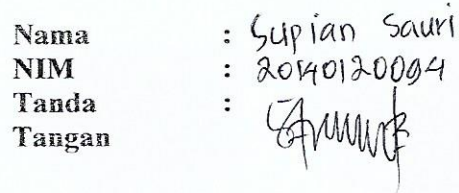 Nama : Supian Sauri
NIM : 20140120094
Tanda :
Tangan